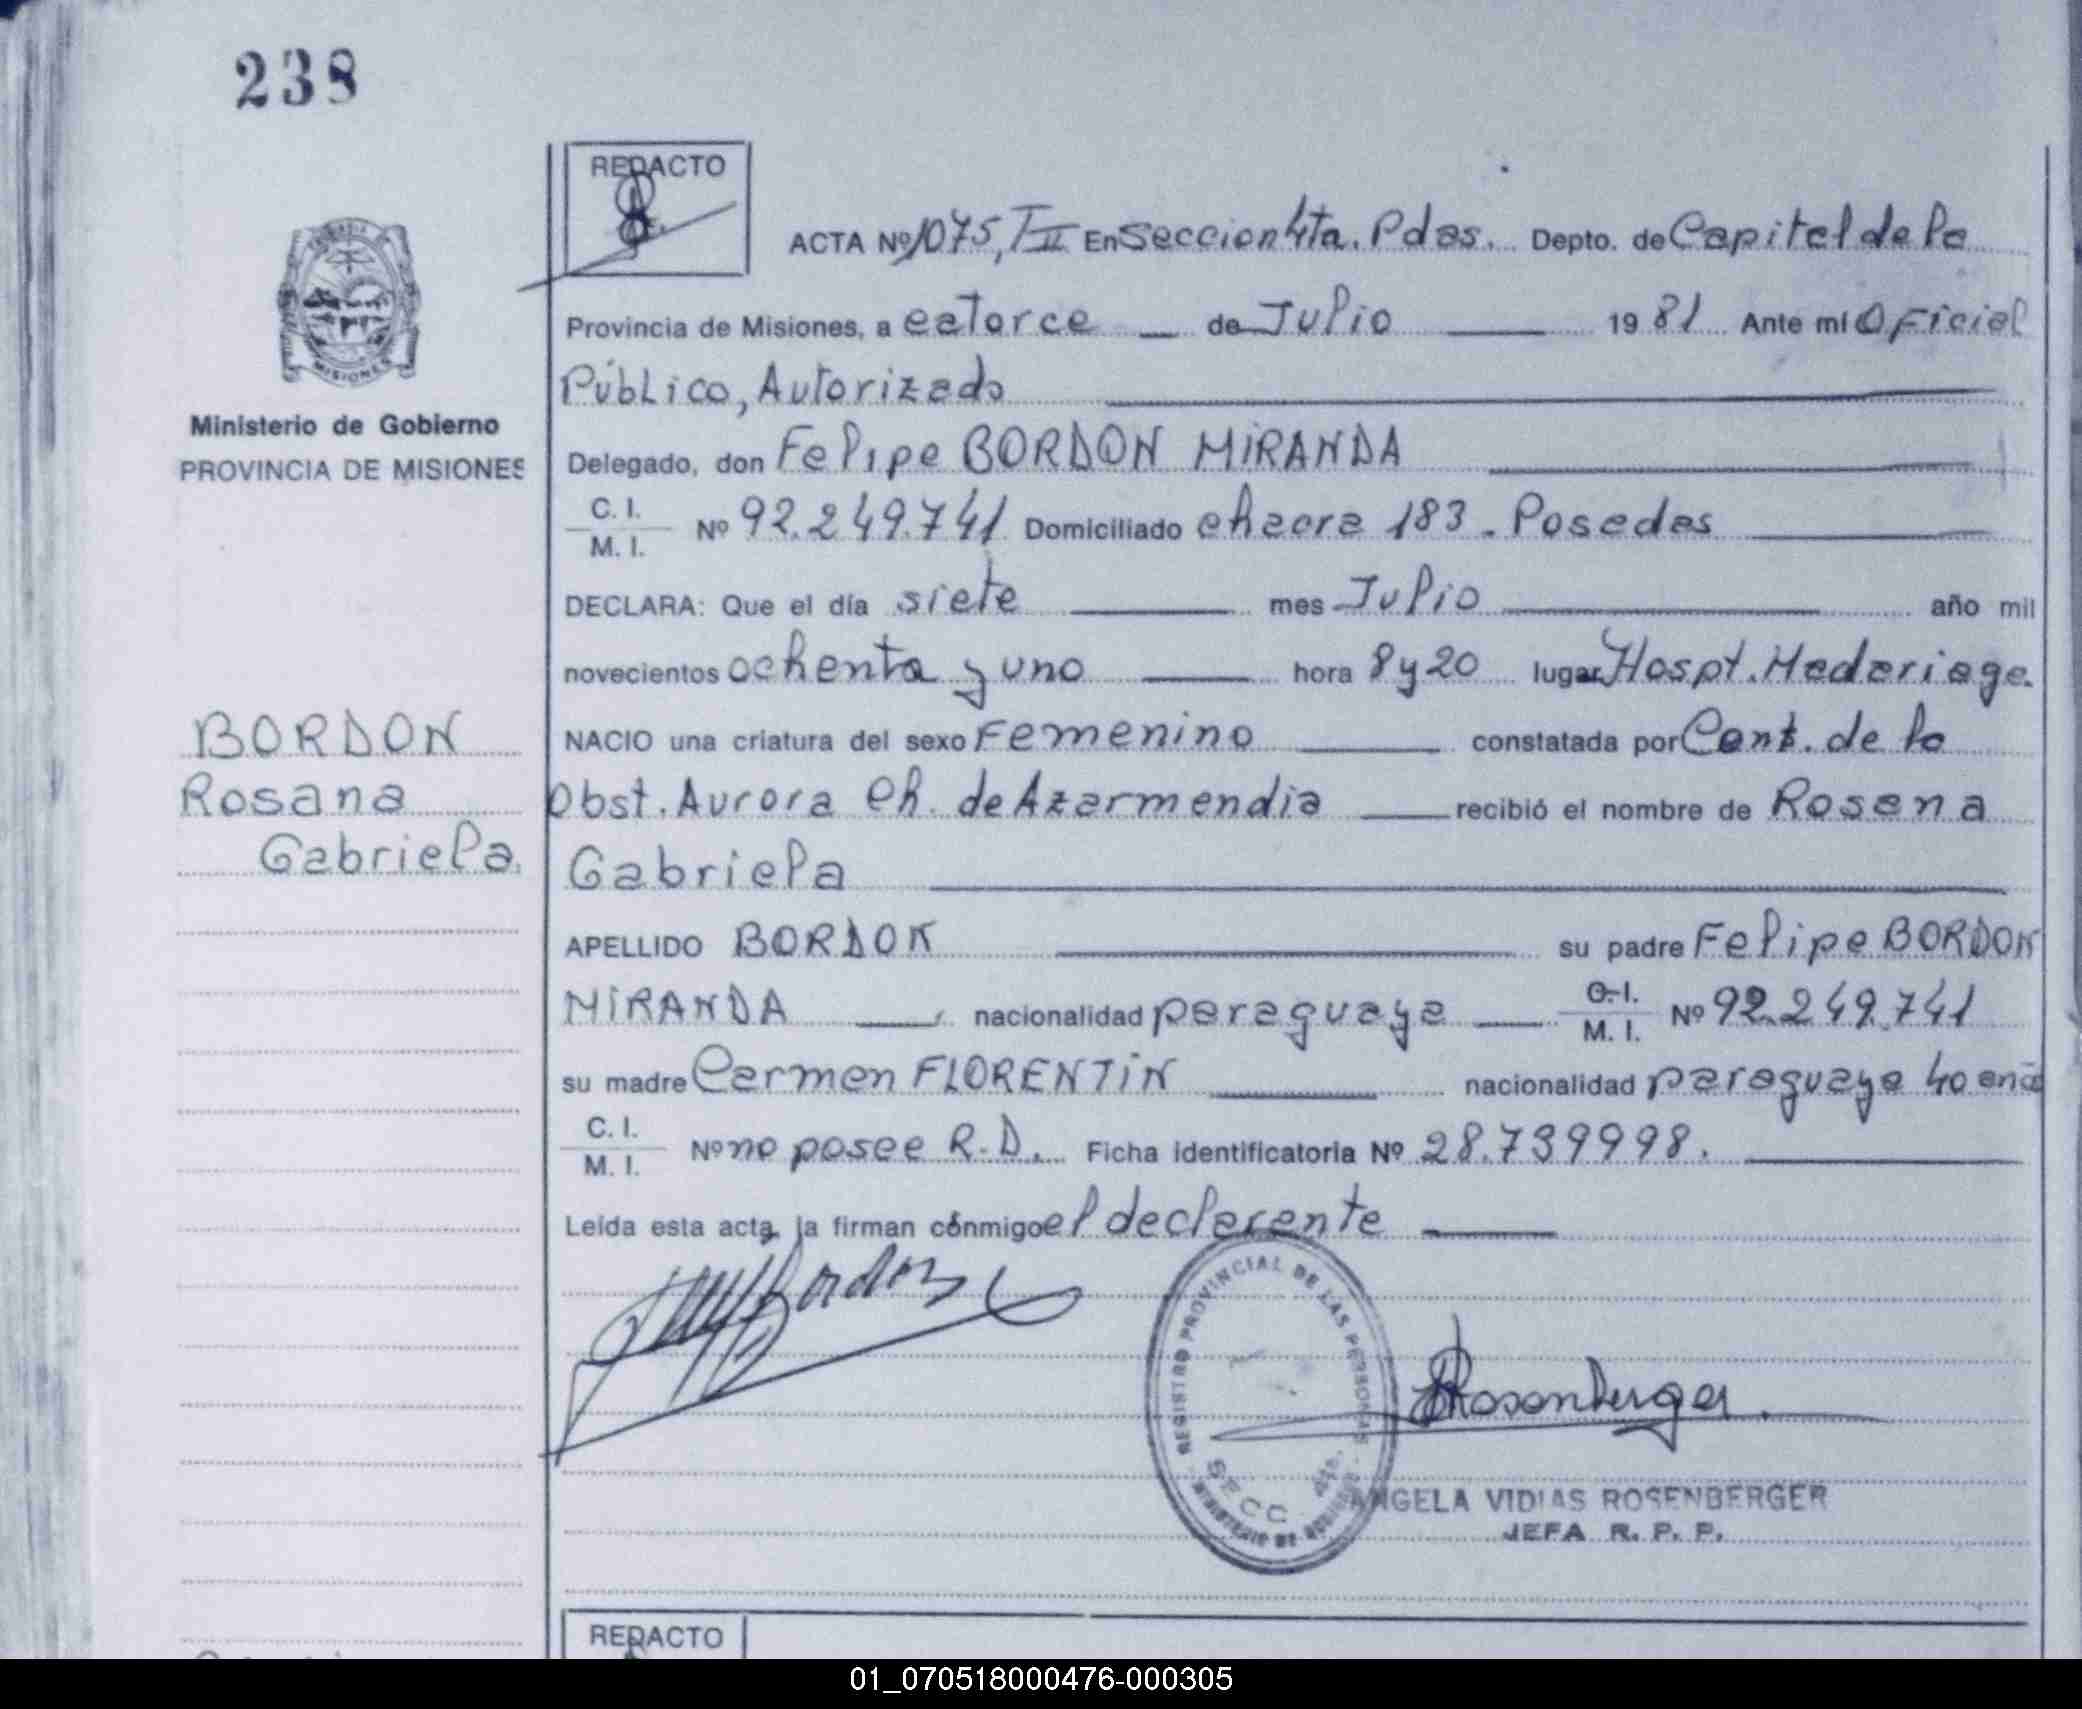 238
REDACTO
ACTA Nº 1075, T II En Seccion 4ta. Pdas. Depto. de Capital de la
Provincia de Misiones, a catorce de Julio 1981 Ante mí Oficial
Público, Autorizado
Ministerio de Gobierno
PROVINCIA DE MISIONES
Delegado, don Felipe BORDON MIRANDA
C. I.
M. I. Nº 92.249.741 Domiciliado chacra 183. Posadas
DECLARA: Que el día siete mes Julio año mil
novecientos ochenta y uno hora 8 y 20 lugar Hospt. Madariaga.
BORDON
Rosana
Gabriela.
NACIO una criatura del sexo Femenino constatada por Cont. de la
Obst. Aurora Ch. de Azarmendia recibió el nombre de Rosana
Gabriela
APELLIDO BORDON su padre Felipe BORDON
MIRANDA nacionalidad paraguaya C. I. M. I. Nº 92.249.741
su madre Carmen FLORENTIN nacionalidad paraguaya 40 año
C. I.
M. I. Nº no posee R.D. Ficha identificatoria Nº 28.739998.
Leída esta acta, la firman conmigo el declarente
Bordon
REGISTRO PROVINCIAL DE LAS PERSONAS
SECC. 4ta.
MINISTERIO DE GOBIERNO
Rosenberger
ANGELA VIDIAS ROSENBERGER
JEFA R. P. P.
REDACTO
01_070518000476-000305